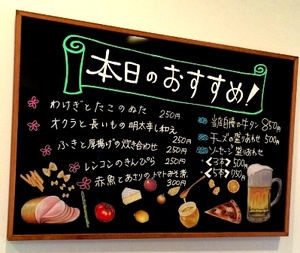 本日のおすすめ!
わけぎとたこのぬた
250円
オクラと長いもの明太辛し和え
250円
ふきと厚揚げの炊き合わせ
250円
レンコンのきんぴら
250円
赤魚とあさりのトマトみそ煮
300円
当店自慢の牛タン 850円
チーズの盛りあわせ 500円
ソーセージ盛りあわせ
<3本> 500円
<5本>